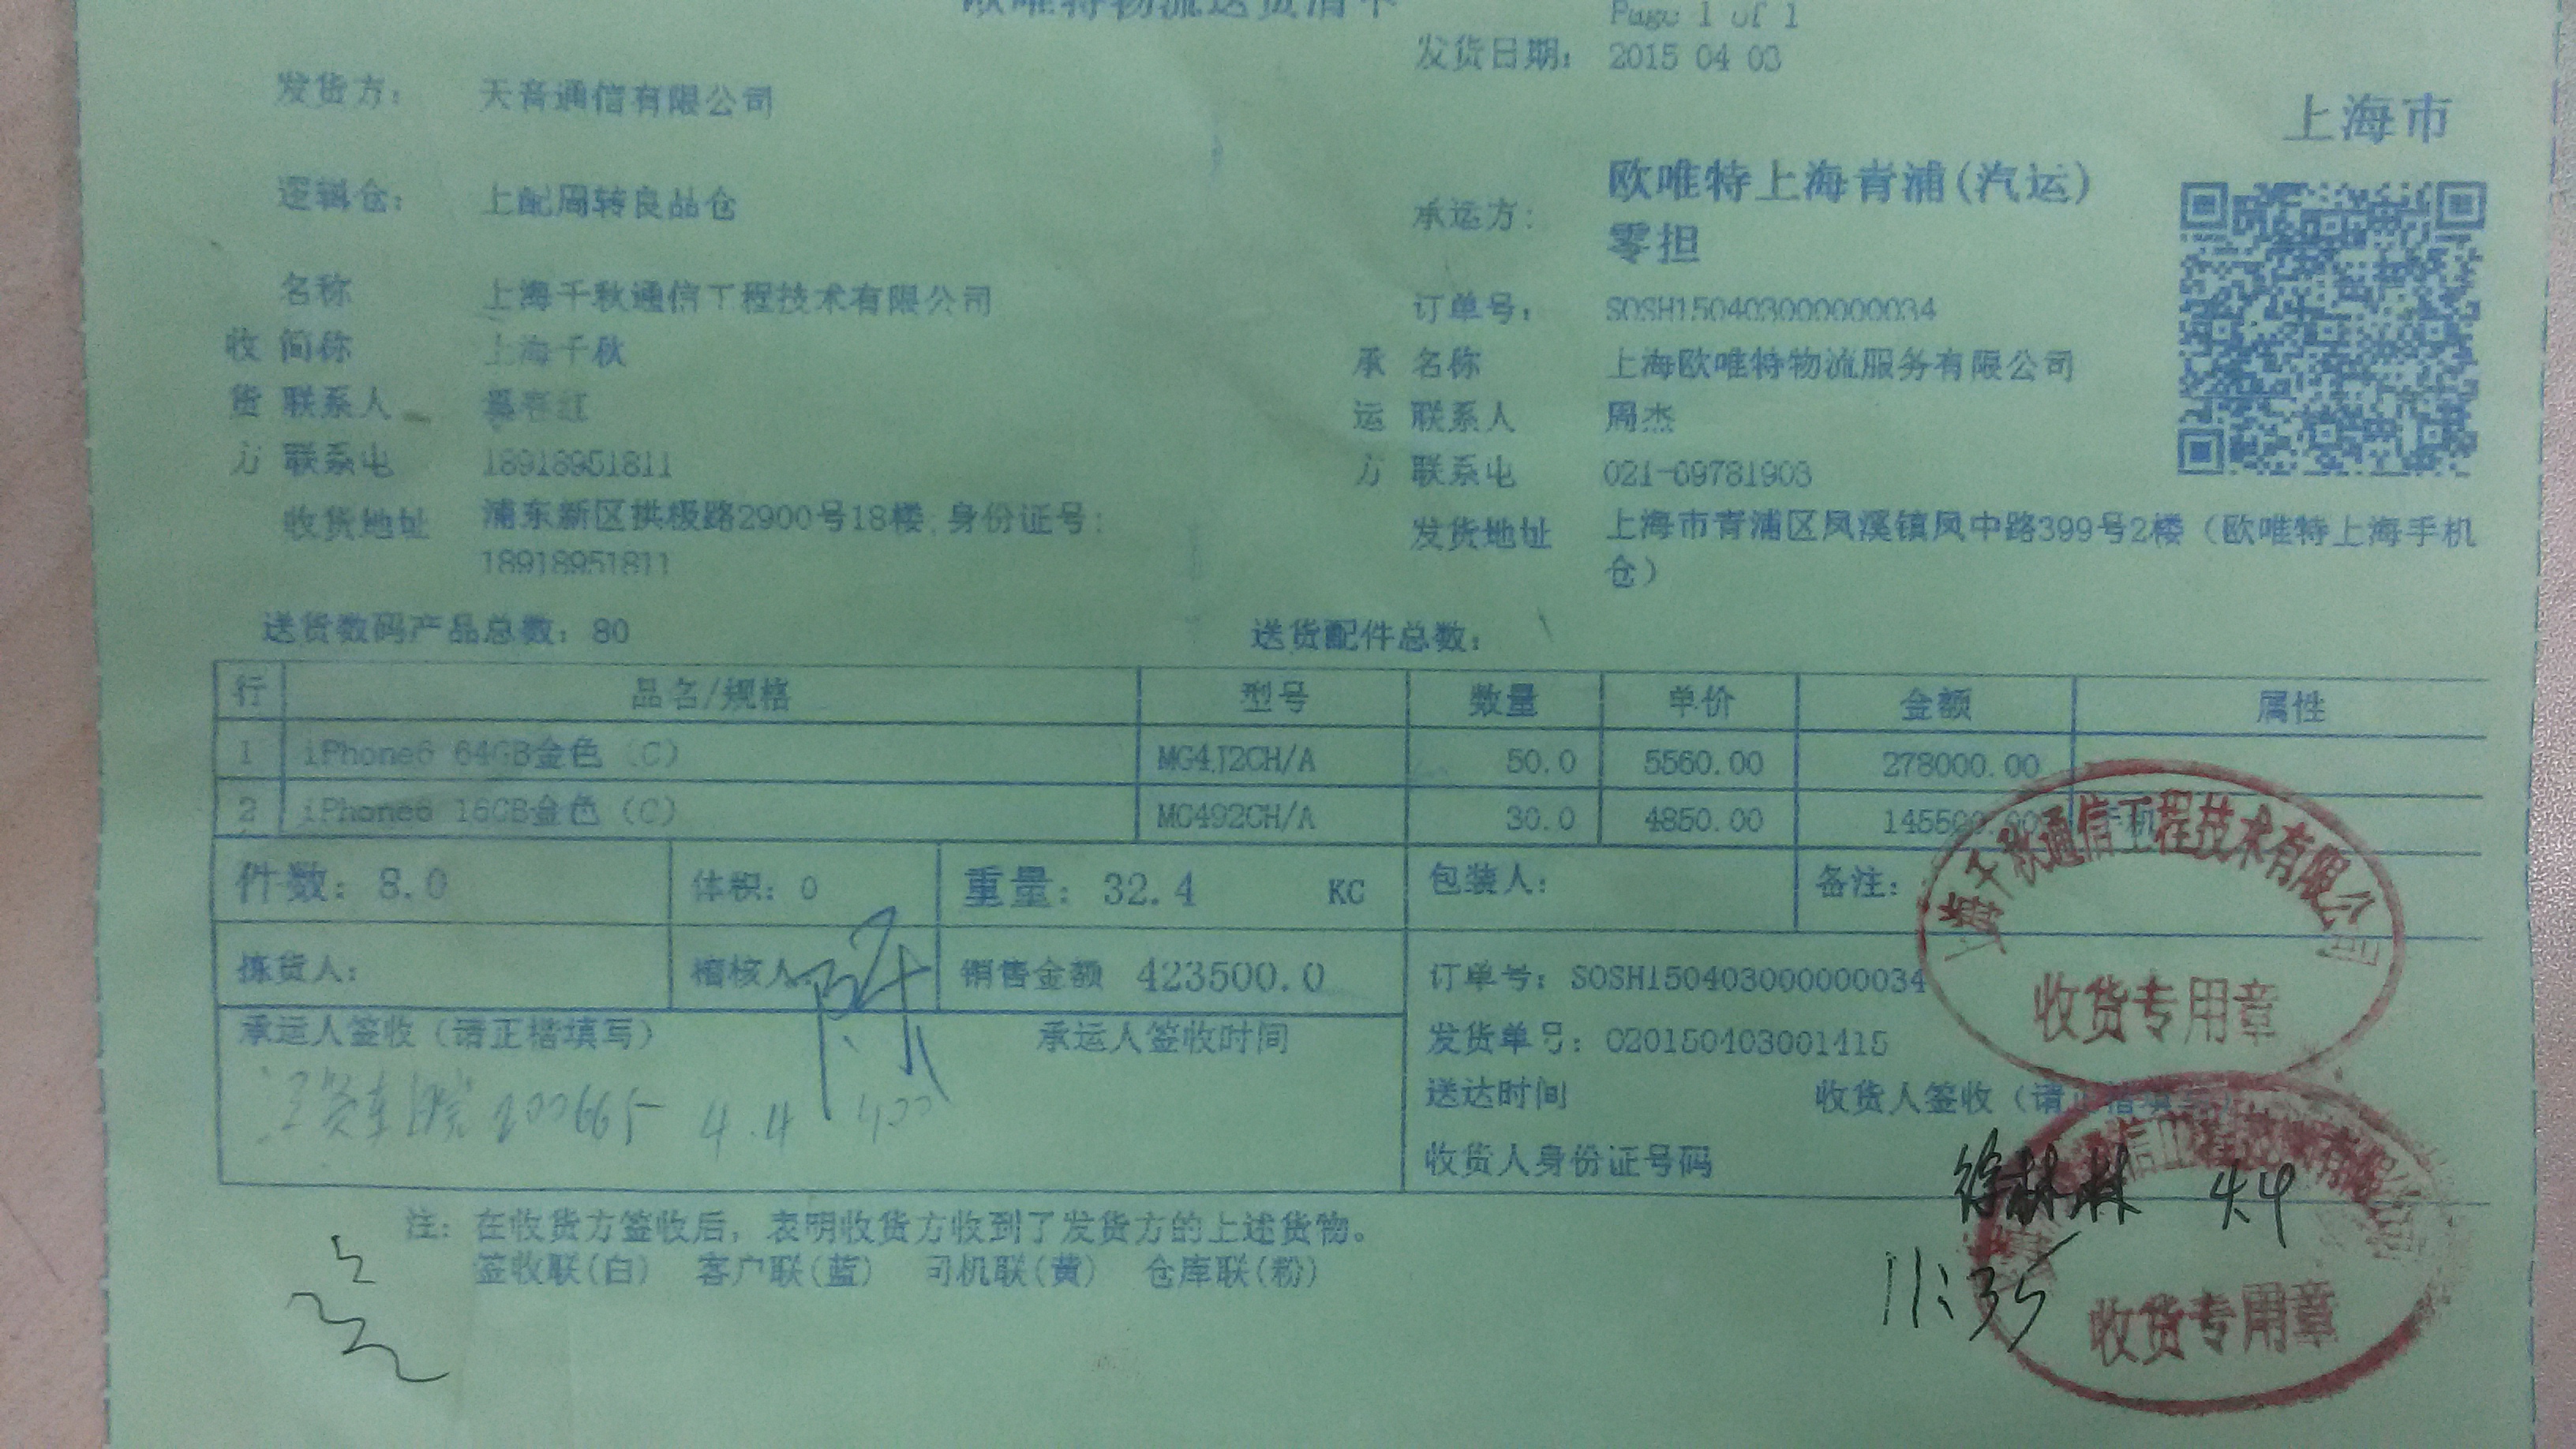 欧唯特物流送货清单
Page 1 of 1
发货日期: 2015 04 03
发货方: 天音通信有限公司
上海市
逻辑仓: 上配周转良品仓
承运方: 欧唯特上海青浦(汽运)
零担
名称 上海千秋通信工程技术有限公司
订单号: SOSH150403000000034
收 简称 上海千秋
承 名称 上海欧唯特物流服务有限公司
货 联系人
运 联系人 周杰
方 联系电 18918951811
方 联系电 021-69781903
收货地址 浦东新区拱极路2900号18楼,身份证号:
18918951811
发货地址 上海市青浦区凤溪镇凤中路399号2楼（欧唯特上海手机
仓）
送货数码产品总数: 80 送货配件总数:
行 品名/规格 型号 数量 单价 金额 属性
1 iPhone6 64GB金色 (C) MG4J2CH/A 50.0 5560.00 278000.00
2 iPhone6 16GB金色 (C) MG492CH/A 30.0 4850.00 145500.00 手机
件数: 8.0 体积: 0 重量: 32.4 KG 包装人: 备注:
拣货人: 稽核人: 销售金额 423500.0 订单号: SOSH150403000000034
承运人签收（请正楷填写） 承运人签收时间
发货单号: 020150403001415
4.4
送达时间 收货人签收（请正楷填写）
收货人身份证号码
徐林林 4.4
11:35
注: 在收货方签收后，表明收货方收到了发货方的上述货物。
签收联(白) 客户联(蓝) 司机联(黄) 仓库联(粉)
上海千秋通信工程技术有限公司
收货专用章
收货专用章